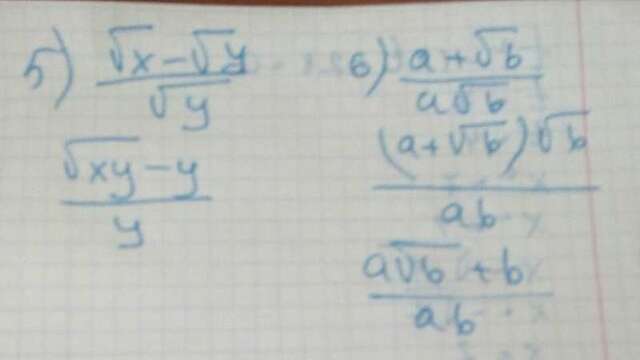 5) (√x - √y)/√y
(√xy - y)/y
6) (a + √b)/(a√b)
((a + √b)√b)/(ab)
(a√b + b)/(ab)